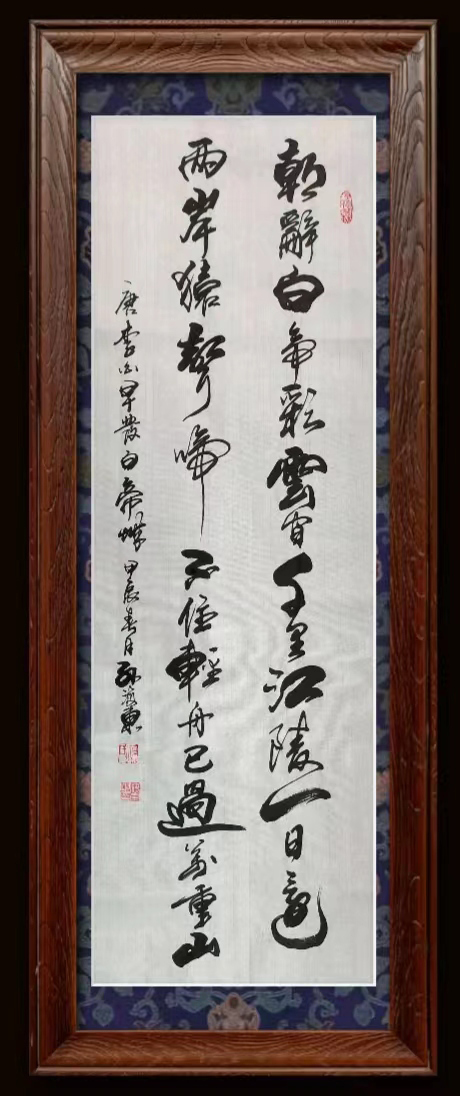 朝辭白帝彩雲間千里江陵一日還
兩岸猿聲啼不住輕舟已過萬重山
唐李白早發白帝城甲辰春月孫東